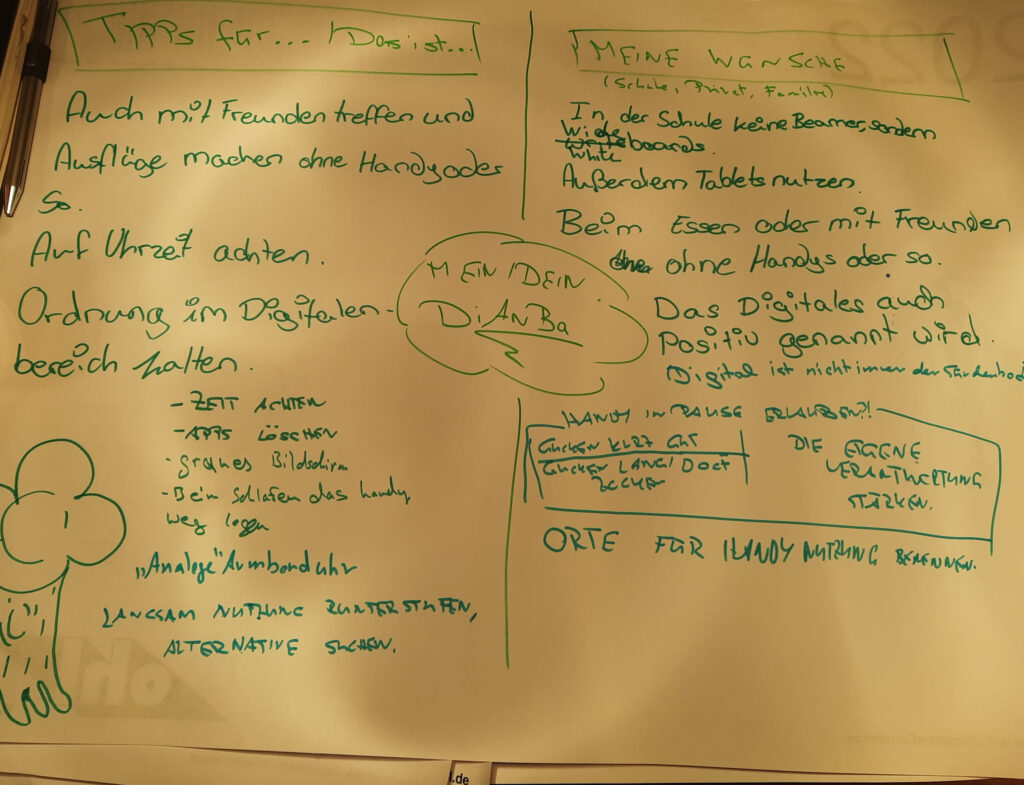 Tipps für... / Das ist...
Auch mit Freunden treffen und
Ausflüge machen ohne Handy oder
So.
Auf Uhrzeit achten.
Ordnung im Digitalen-
bereich halten.
- ZEIT ACHTEN
- APPS LÖSCHEN
- graues Bildschirm
- Beim Schlafen das handy
weg legen
„Analoge" Armbanduhr
LANGSAM NUTZUNG RUNTERSTUFEN,
ALTERNATIVE SUCHEN.
MEIN/DEIN
DiANBa
MEINE WÜNSCHE
(Schule, Privat, Familie)
In der Schule keine Beamer, sondern
White boards.
Außerdem Tablets nutzen.
Beim Essen oder mit Freunden
ohne Handys oder so.
Das Digitales auch
Positiv genannt wird.
Digital ist nicht immer der
HANDY IN PAUSE ERLAUBEN?!
GUCKEN KURZ GUT
GUCKEN LANG/
DIE EIGENE
VERANTWORTUNG
STÄRKEN.
ORTE FÜR HANDYNUTZUNG BENENNEN.
2022
ohl
l.de